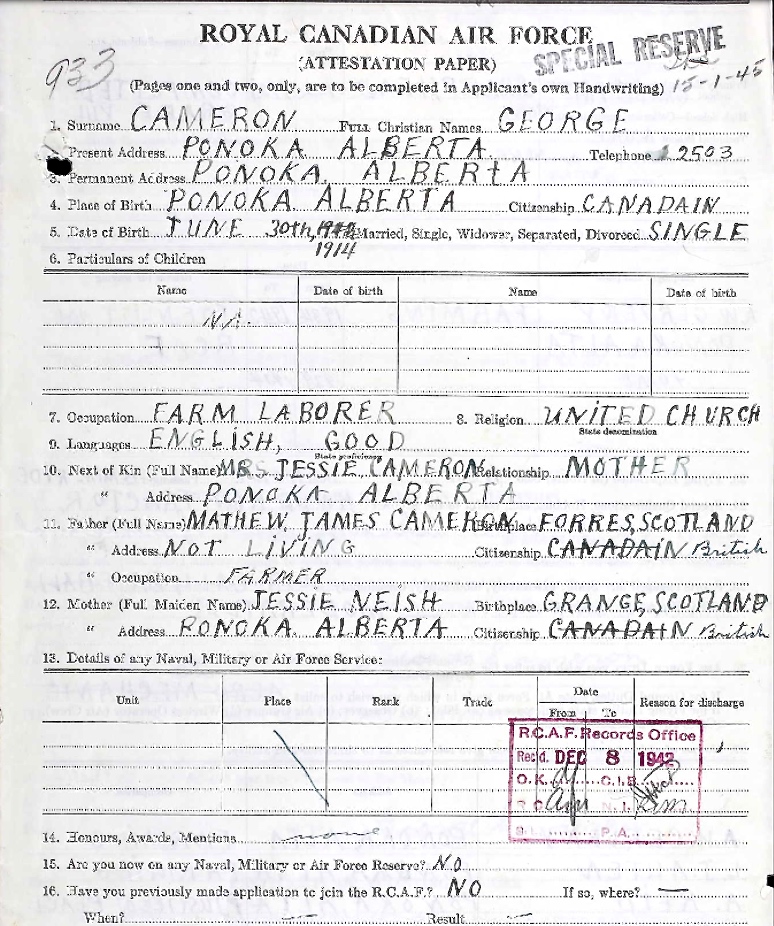 ROYAL CANADIAN AIR FORCE
SPECIAL RESERVE
(ATTESTATION PAPER)
933
(Pages one and two, only, are to be completed in Applicant's own Handwriting) 15-1-45
1. Surname CAMERON Full Christian Names GEORGE
2. Present Address PONOKA ALBERTA Telephone 2503
3. Permanent Address PONOKA, ALBERTA
4. Place of Birth PONOKA ALBERTA Citizenship CANADAIN
5. Date of Birth JUNE 30th, Married, Single, Widower, Separated, Divorced SINGLE
1914
6. Particulars of Children
Name Date of birth Name Date of birth
N.A.
7. Occupation FARM LABORER 8. Religion UNITED CHURCH
State denomination
9. Languages ENGLISH, GOOD
State proficiency
10. Next of Kin (Full Name) MRS JESSIE CAMERON Relationship MOTHER
" Address PONOKA ALBERTA
11. Father (Full Name) MATHEW JAMES CAMERON Birthplace FORRES, SCOTLAND
" Address NOT LIVING Citizenship CANADAIN British
" Occupation FARMER
12. Mother (Full Maiden Name) JESSIE NEISH Birthplace GRANGE, SCOTLAND
" Address PONOKA ALBERTA Citizenship CANADAIN British
13. Details of any Naval, Military or Air Force Service:
Unit Place Rank Trade Date Reason for discharge
From To
R.C.A.F. Records Office
Rec'd. DEC 8 1942
O.K. C.I.B.
P.A.
14. Honours, Awards, Mentions none
15. Are you now on any Naval, Military or Air Force Reserve? NO
16. Have you previously made application to join the R.C.A.F.? NO If so, where? —
When? — Result —